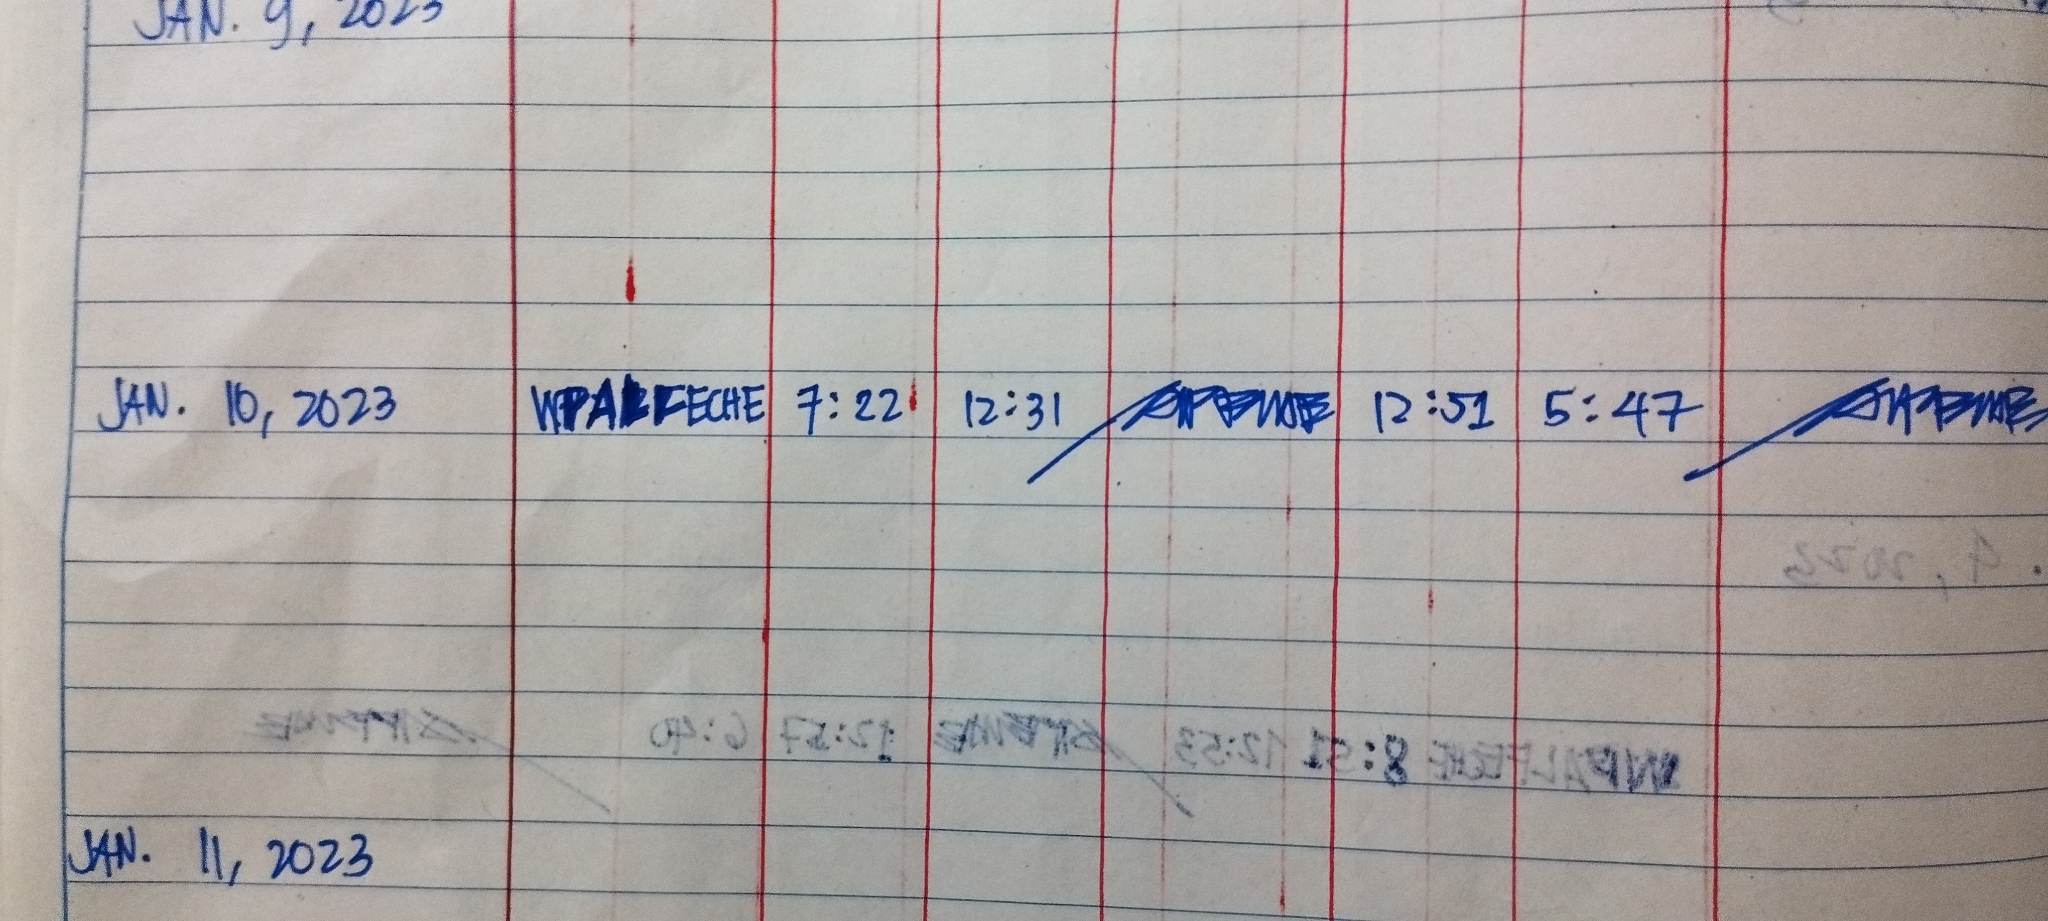 JAN. 9, 2023
JAN. 10, 2023 WPALFECHE 7:22 12:31 12:51 5:47
JAN. 11, 2023